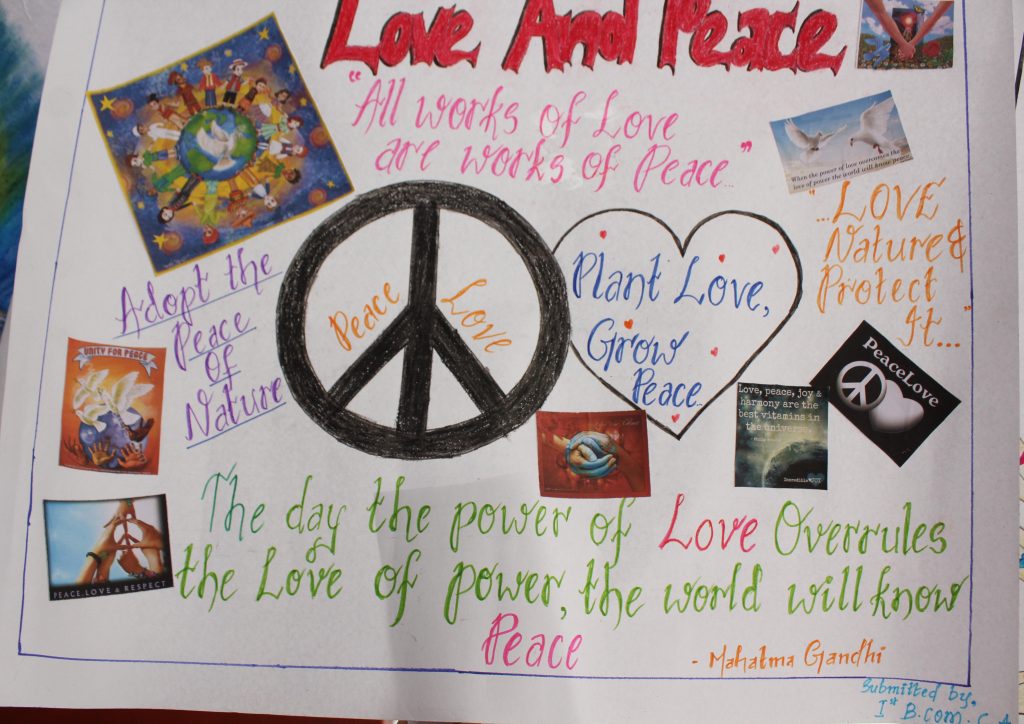 Love And Peace
"All works of Love
are works of Peace..."
When the power of love overcomes the
love of power the world will know peace
"...LOVE
Nature &
Protect
It..."
Adopt the
Peace
Of
Nature
Peace Love
Plant Love,
Grow
Peace..
UNITY FOR PEACE
Love, peace, joy &
harmony are the
best vitamins in
the universe.
PeaceLove
PEACE, LOVE & RESPECT
The day the power of Love Overrules
the Love of power, the world will know
Peace
- Mahatma Gandhi
Submitted by,
Ist B.com.